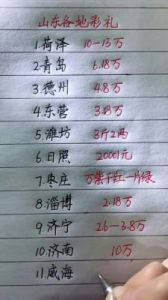 山东各地彩礼
1菏泽 10-15万
2青岛 6.18万
3德州 4.8万
4东营 3.85万
5潍坊 3斤2两
6日照 20001元
7枣庄 万紫千红一片绿
8淄博 2.18万
9济宁 2.6-3.8万
10济南 10万
11威海